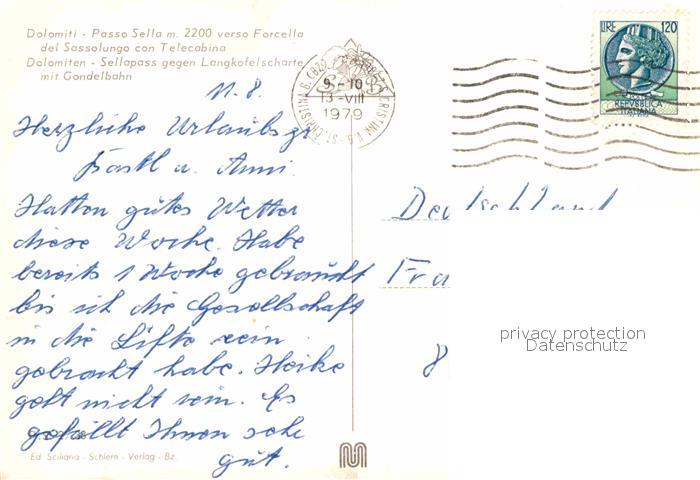 Dolomiti - Passo Sella m. 2200 verso Forcella
del Sassolungo con Telecabina
Dolomiten - Sellapass gegen Langkofelscharte
mit Gondelbahn
LIRE 120
REPVBBLICA
ITALIANA
9-10
13-VIII
1979
Herzliche Urlaubsgr
u. Anni.
Hatten gutes Wetter
diese Woche. Habe
bereits 1 Woche gebraucht
bis ich die Gesellschaft
in die Lifte rein
gebracht habe. Heike
geht nicht rein. Es
gefällt Ihnen sehr
gut.
Deutschland
Fra
8
privacy protection
Datenschutz
Ed. Sciliana - Schlern - Verlag - Bz.